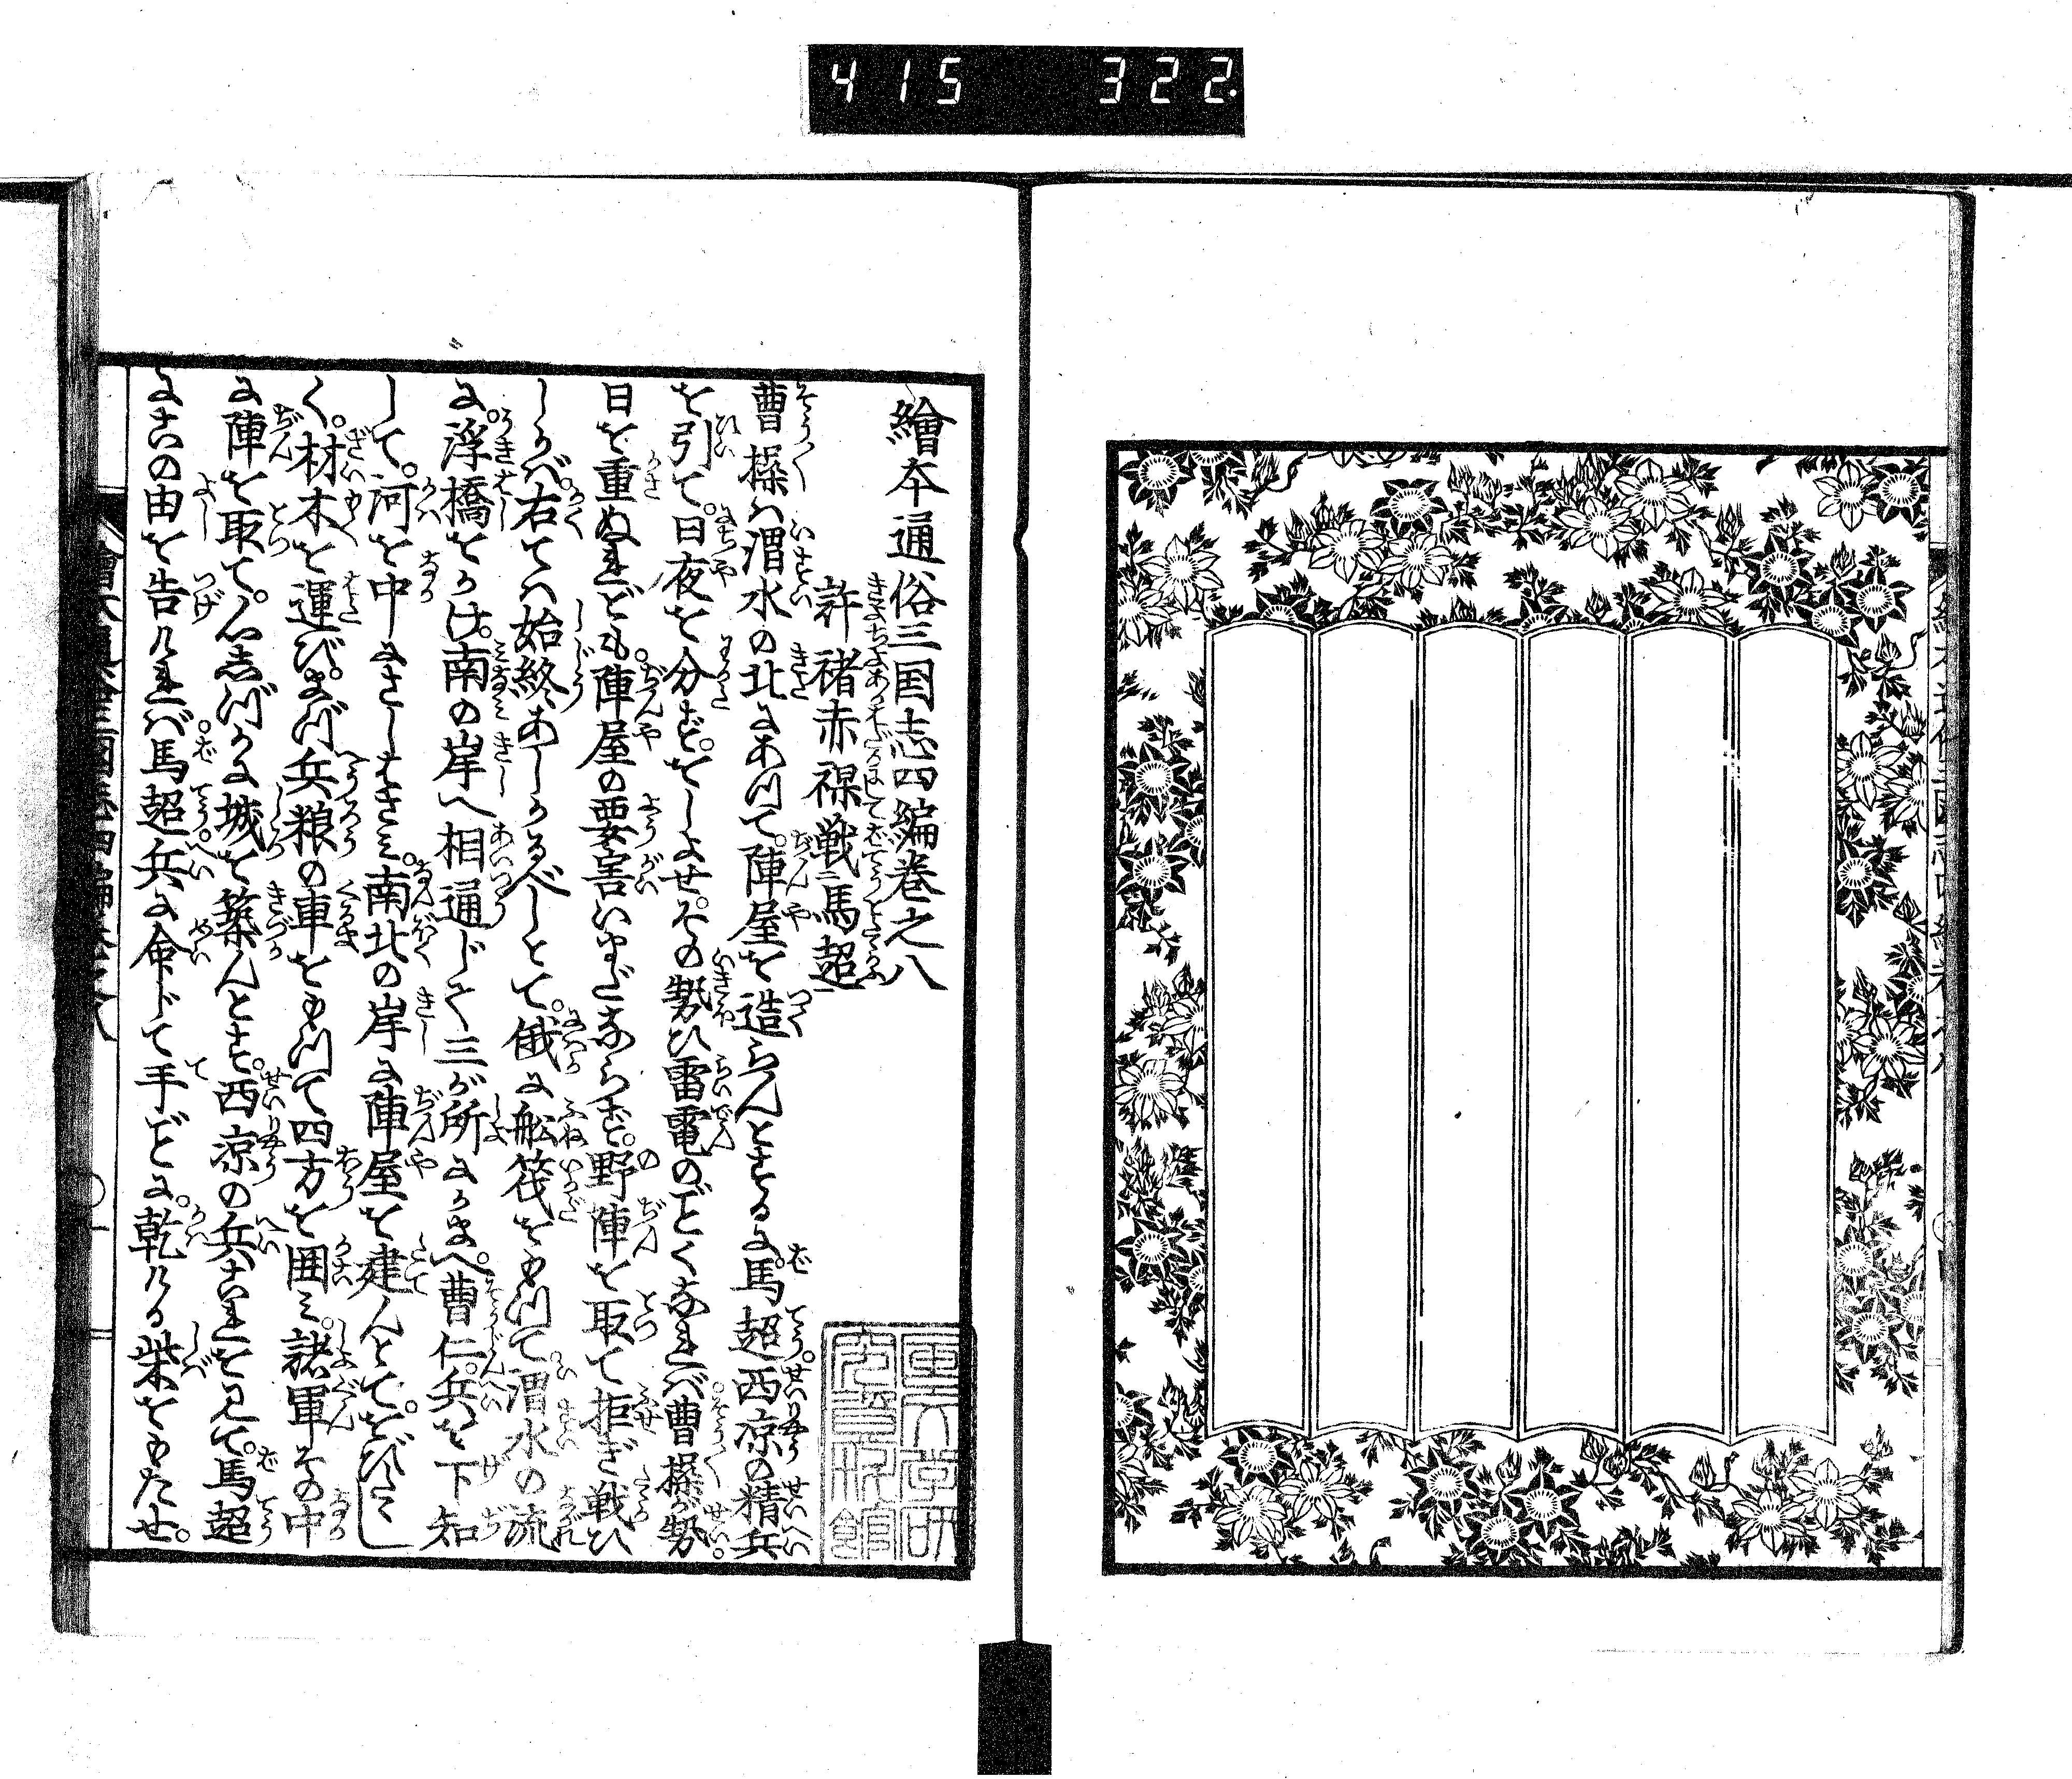 415 322
繪本通俗三国志四編巻之八
許褚赤裸戦馬超
曹操ハ渭水の北にあつて。陣屋を造らんとするに。馬超西凉の精兵
を引て。日夜を分ず。をしよせ。その勢ひ雷電のごとくなれバ曹操が勢。
日を重ぬれども。陣屋の要害いまだならず。野陣を取て拒ぎ戦ひ
しかバ。右てハ始終あしかるべしとて。俄に舩筏をもつて渭水の流
に。浮橋をかけ。南の岸へ相通じて三が所にかまへ。曹仁。兵を下知
して。河を中にさしはさミ。南北の岸に陣屋を建んとて。をびたゝし
く。材木を運び。まづ兵粮の車をもつて四方を囲ミ。諸軍その中
に陣を取て。心しづかに城を築んとす。西凉の兵これを見て。馬超
にこの由を告けれバ。馬超。兵に命じて手ごとに。乾ける柴をもたせ。